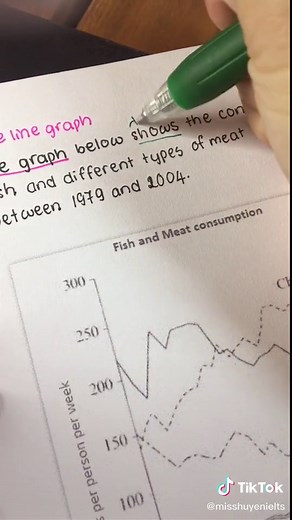 e line graph
e graph below shows the con
sh and different types of meat
between 1979 and 2004.
Fish and Meat consumption
300
250
200
150
100
s per person per week
Ch
TikTok
@misshuyenielts